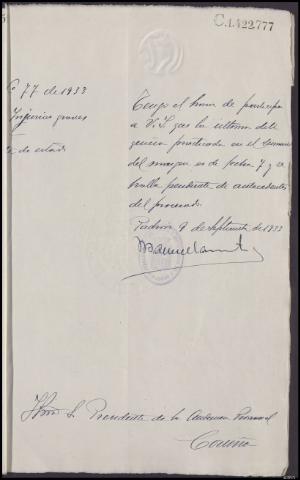 C.1.422.777
77 de 1933
Injurias graves
Tengo el honor de participar
a V.S. que la última dili
gencia practicada en el sumario
del margen es de fecha 7 y se
halla pendiente de antecedentes
del procesado
Padrón 9 de Septiembre de 1933
Iltmo Sr Presidente de la Audiencia Provincial
Coruña